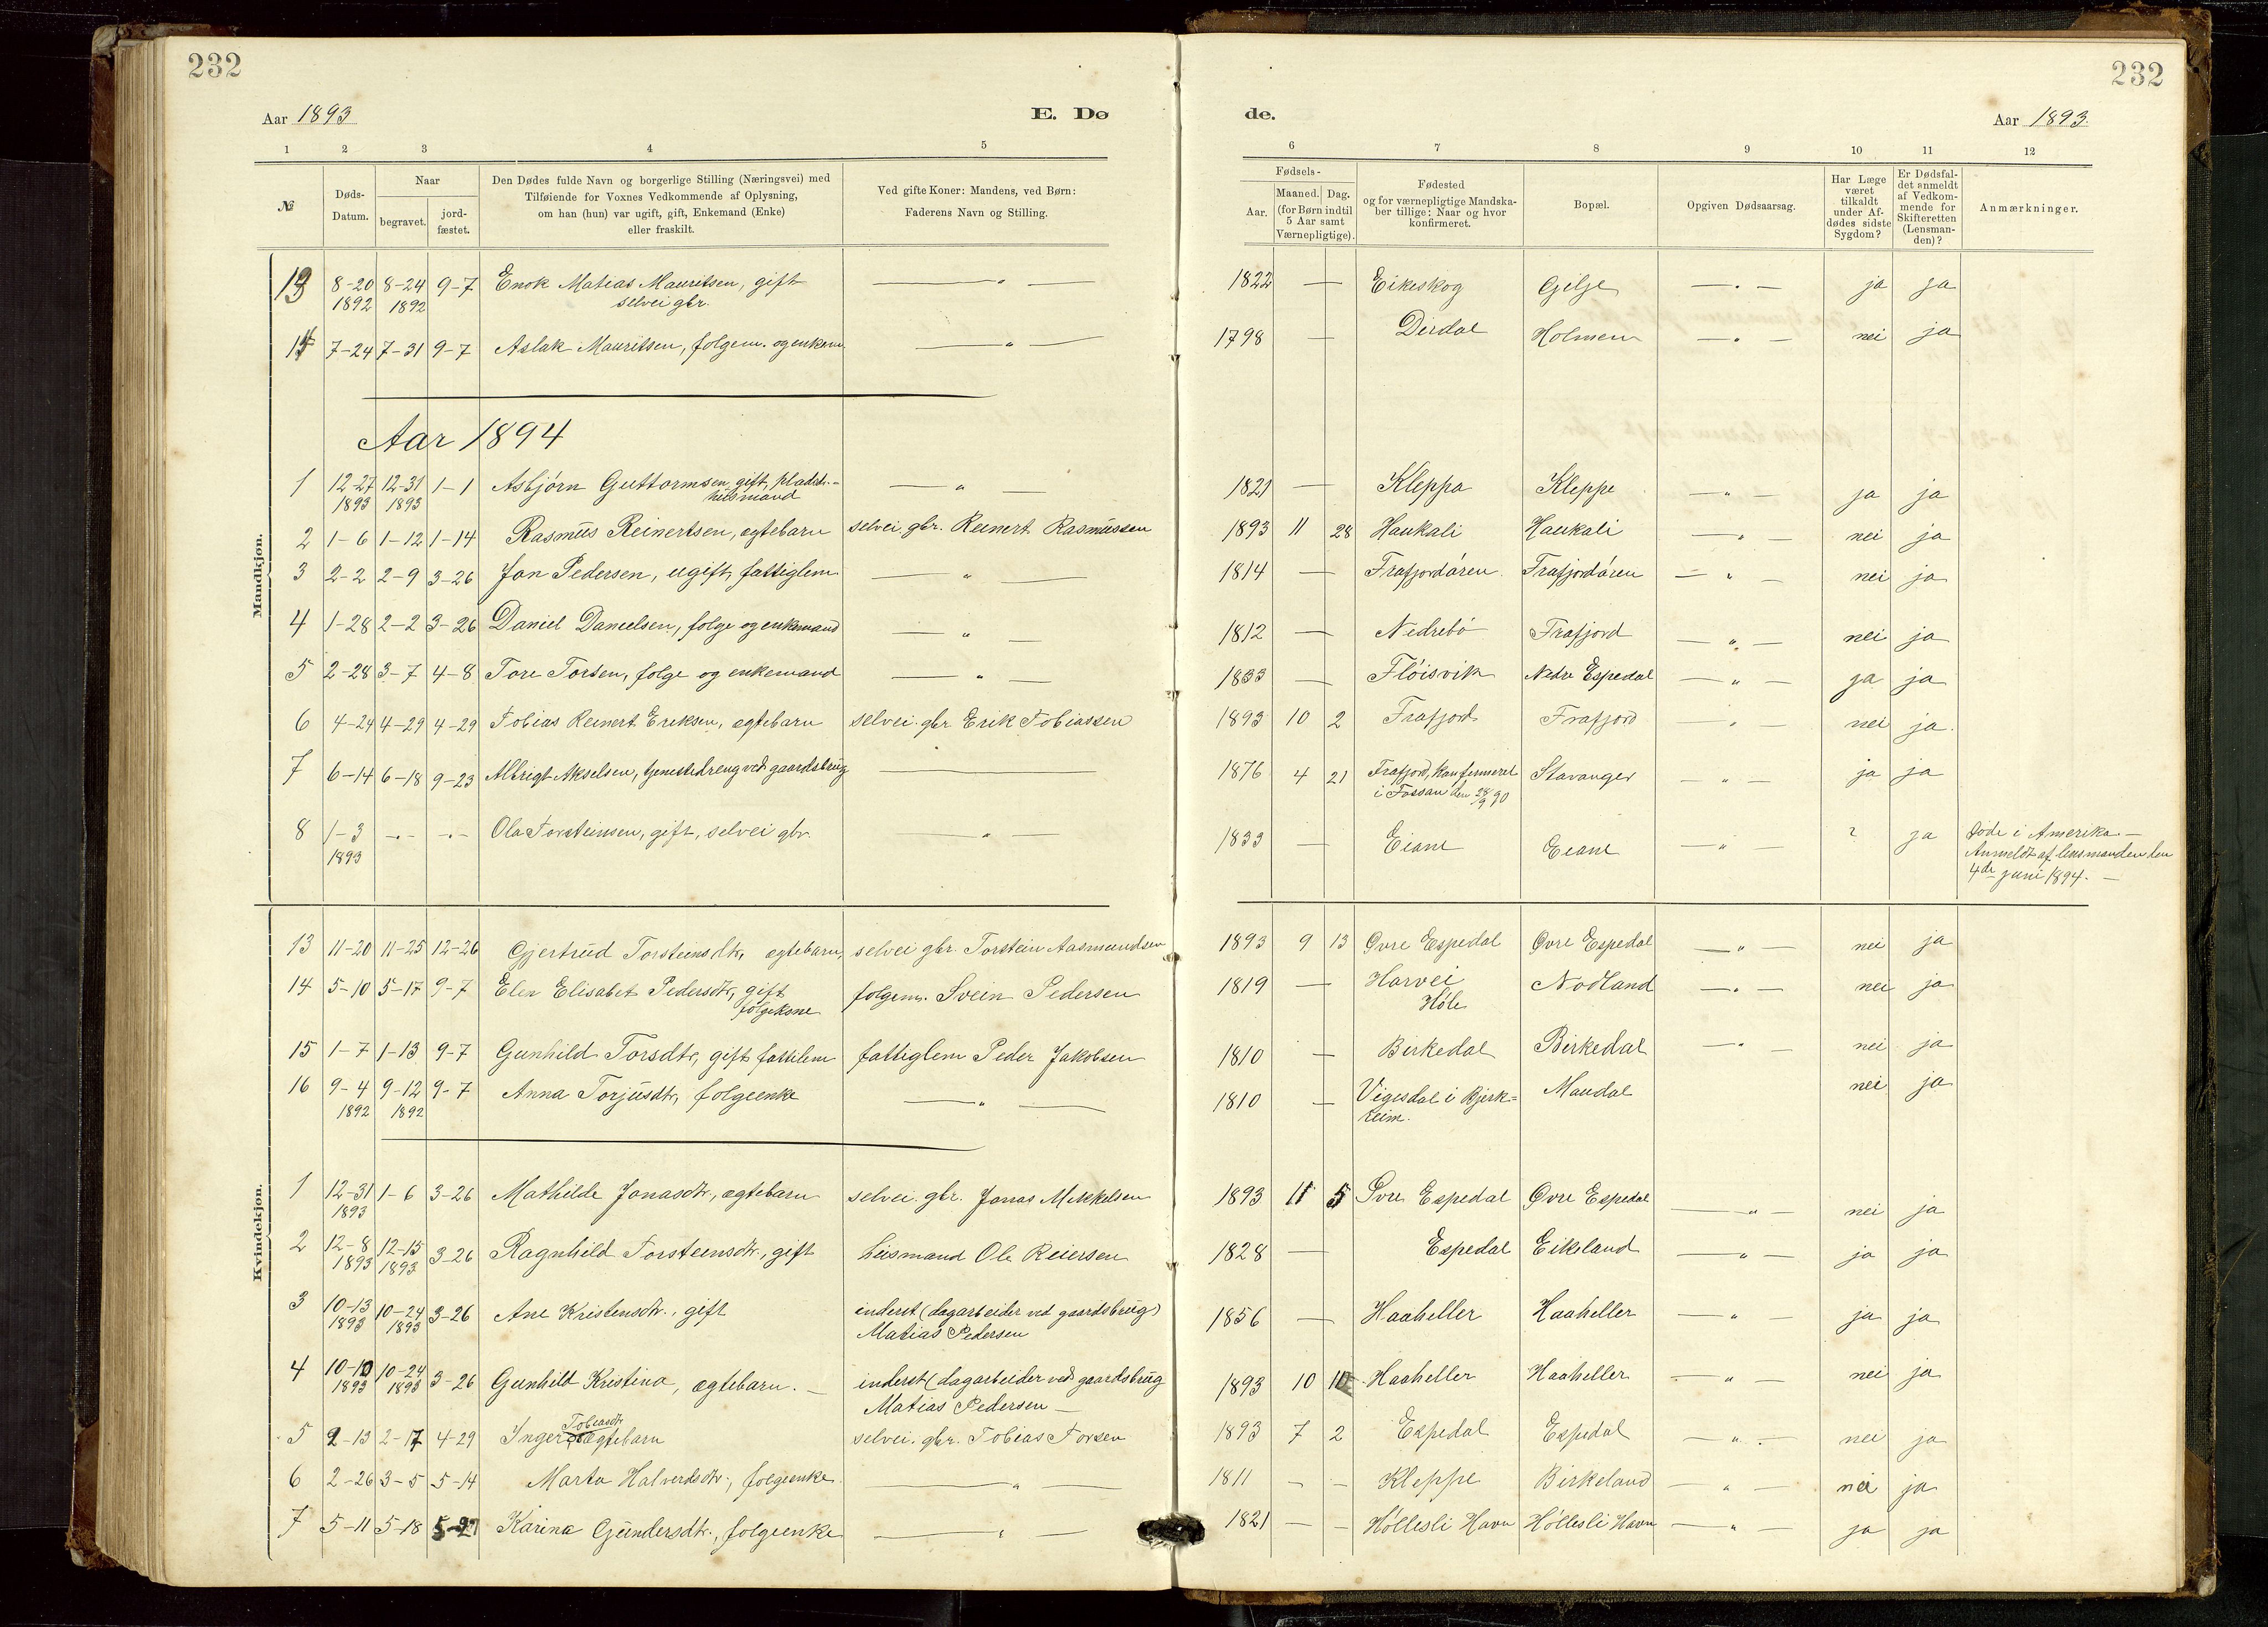 232
232
Aar 1893
E. Dø
de.
Aar 1893.
1 2 3 4 5 6 7 8 9 10 11 12
№
Døds-
Datum.
Naar
begravet.
jord-
fæstet.
Den Dødes fulde Navn og borgerlige Stilling (Næringsvei) med
Tilføiende for Voxnes Vedkommende af Oplysning,
om han (hun) var ugift, gift, Enkemand (Enke)
eller fraskilt.
Ved gifte Koner: Mandens, ved Børn:
Faderens Navn og Stilling.
Fødsels-
Aar.
Maaned. Dag.
(for Børn indtil
5 Aar samt
Værnepligtige).
Fødested
og for værnepligtige Mandska-
ber tillige: Naar og hvor
konfirmeret.
Bopæl.
Opgiven Dødsaarsag.
Har Læge
været
tilkaldt
under Af-
dødes sidste
Sygdom?
Er Dødsfal-
det anmeldt
af Vedkom-
mende for
Skifteretten
(Lensman-
den)?
Anmærkninger.
Mandkjøn.
13 8-20 8-24 9-7 Enok Matias Mauritsen, gift — " — 1822 — Eikeskog Gilje — " — ja ja
1892 1892 selvei gbr.
14 7-24 7-31 9-7 Aslak Mauritsen, folgem. og enkem. — " — 1798 — Dirdal Holmen — " — nei ja
Aar 1894
1 12-27 12-31 1-1 Asbjørn Guttormsen, gift, pladds- — " — 1821 — Kleppa Kleppe — " — ja ja
1893 1893 husmand
2 1-6 1-12 1-14 Rasmus Reinertsen, ægtebarn selvei gbr. Reinert Rasmussen 1893 11 28 Haukali Haukali — " — nei ja
3 2-2 2-9 3-26 Jan Pedersen, ugift, fattiglem — " — 1814 — Frafjordøren Frafjordøren — " — nei ja
4 1-28 2-2 3-26 Daniel Danielsen, folge og enkemand — " — 1812 — Nedrebø Frafjord — " — nei ja
5 2-28 3-7 4-8 Tore Torsen, folge og enkemand — " — 1833 — Fløisvik Nedre Espedal — " — ja ja
6 4-24 4-29 4-29 Tobias Reinert Eriksen, ægtebarn selvei. gbr Erik Tobiassen 1893 10 2 Frafjord Frafjord " nei ja.
7 6-14 6-18 9-23 Albrigt Akselsen, tjenestedreng ved gaardsbrug — — 1876 4 21 Frafjord, konfirmeret Stavanger — " — ja ja
i Fossan den 28/9 90
8 1-3 -"- -"- Ola Torsteinsen, gift, selvei gbr. — " — 1833 — Eiane Eiane — " — ? ja Døde i Amerika. —
1893 Anmeldt af lensmanden den
4de juni 1894. —
Kvindekjøn.
13 11-20 11-25 12-26 Gjertrud Torsteinsdtr, ægtebarn, selvei gbr. Torstein Aasmundsen 1893 9 13 Øvre Espedal Øvre Espedal — " — nei ja
14 5-10 5-17 9-7 Elen Elisabet Pedersdtr, gift folgem. Svein Pedersen 1819 — Harvei Nodland — " — nei ja
folgekone Høle
15 1-7 1-13 9-7 Gunhild Torsdtr, gift fattilem fattiglem Peder Jakobsen 1810 — Birkedal Birkedal — " — nei ja
16 9-4 9-12 9-7 Anna Torjusdtr, folgeenke — " — 1810 — Vigesdal i Bjerk= Maudal nei ja
1892 1892 reim.
1 12-31 1-6 3-26 Mathilde Jonasdtr., ægtebarn selvei. gbr. Jonas Mikkelsen 1893 11 5 Øvre Espedal Øvre Espedal — " — nei ja
1893
2 12-8 12-15 3-26 Ragnhild Torsteinsdtr., gift husmand Ole Reiersen 1828 — Espedal Eikeland — " — ja ja
1893 1893
3 10-13 10-24 3-26 Ane Kristensdtr., gift inderst (dagarbeider ved gaardsbrug) 1856 — Haaheller Haaheller — " — ja ja
1893 1893 Matias Pedersen
4 10-10 10-24 3-26 Gunhild Kristina, ægtebarn. — inderst (dagarbeider ved gaardsbrug 1893 10 10 Haaheller Haaheller — " — nei ja
1893 1893 Matias Pedersen —
Tobiasdtr
5 2-13 2-17 4-29 Inger ægtebarn selvei. gbr. Tobias Torsen 1893 7 2 Espedal Espedal — " — nei ja
6 2-26 3-5 5-14 Marta Halvordsdtr., folgeenke. — " — 1811 - - Kleppe Birkeland — " — nei ja
7 5-11 5-18 Karina Gundersdtr., folgeenke — " — 1821 — - Høllesli Havn Høllesli Havn — " — ja ja